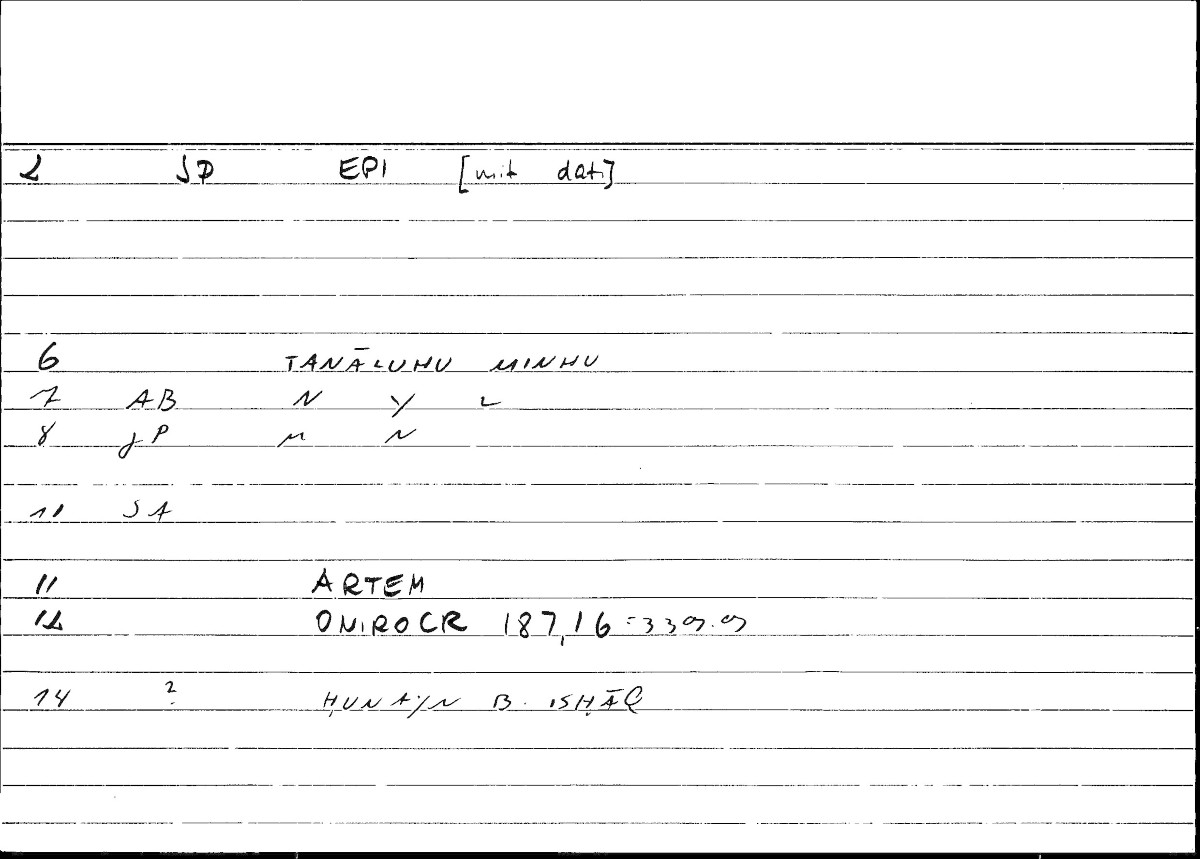 2 SP EPI [mit dat.]
6 TANĀLUHU MINHU
7 AB N Y L
8 JP M N
11 SA
11 ARTEM
12 ONIROCR 187,16 = 339.9
14 ? ḤUNAYN B. ISḤĀQ